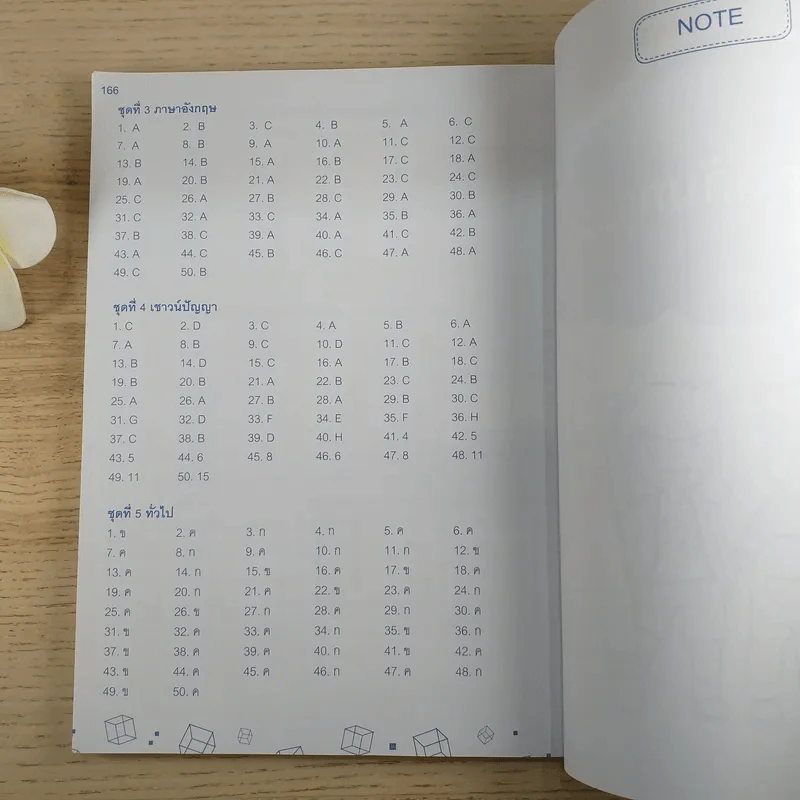 166
ชุดที่ 3 ภาษาอังกฤษ
1. A 2. B 3. C 4. B 5. A 6. C
7. A 8. B 9. A 10. A 11. C 12. C
13. B 14. B 15. A 16. B 17. C 18. A
19. A 20. B 21. A 22. B 23. C 24. C
25. C 26. A 27. B 28. C 29. A 30. B
31. C 32. A 33. C 34. A 35. B 36. A
37. B 38. C 39. A 40. A 41. C 42. B
43. A 44. C 45. B 46. C 47. A 48. A
49. C 50. B
ชุดที่ 4 เชาวน์ปัญญา
1. C 2. D 3. C 4. A 5. B 6. A
7. A 8. B 9. C 10. D 11. C 12. A
13. B 14. D 15. C 16. A 17. B 18. C
19. B 20. B 21. A 22. B 23. C 24. B
25. A 26. A 27. B 28. A 29. B 30. C
31. G 32. D 33. F 34. E 35. F 36. H
37. C 38. B 39. D 40. H 41. 4 42. 5
43. 5 44. 6 45. 8 46. 6 47. 8 48. 11
49. 11 50. 15
ชุดที่ 5 ทั่วไป
1. ข 2. ค 3. ก 4. ก 5. ค 6. ค
7. ค 8. ก 9. ค 10. ก 11. ก 12. ข
13. ค 14. ก 15. ข 16. ค 17. ข 18. ค
19. ค 20. ก 21. ค 22. ข 23. ค 24. ก
25. ค 26. ข 27. ก 28. ค 29. ก 30. ค
31. ข 32. ค 33. ค 34. ก 35. ข 36. ก
37. ข 38. ค 39. ค 40. ก 41. ข 42. ค
43. ข 44. ค 45. ค 46. ก 47. ค 48. ก
49. ข 50. ค
NOTE